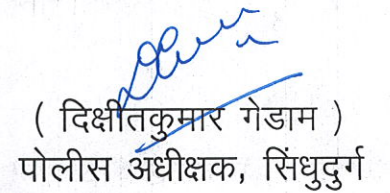 ( दिक्षीतकुमार गेडाम )
पोलीस अधीक्षक, सिंधुदुर्ग